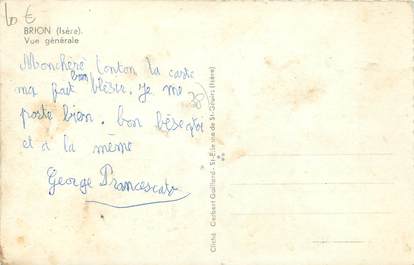 10 €
BRION (Isère).
Vue générale
Monchéré tonton la carte
ma fait bon blésir. Je me
porte bien. bon bése toi
et à la même
George
38
Cliché Gerbert Guillard - St-Etienne de St-Geoirs (Isère)